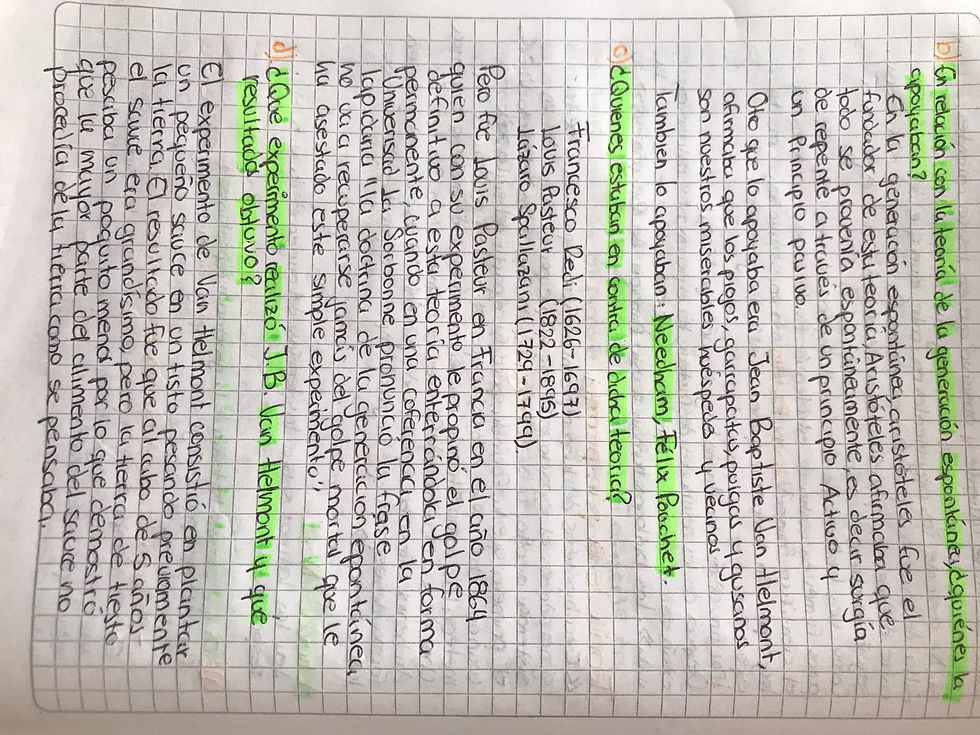 b) En relación con la teoría de la generación espontánea, ¿quiénes la
apoyaban?
En la generación espontánea, aristóteles fue el
fundador de esta teoría, Aristóteles afirmaba que
todo se provenía espontáneamente, es decir surgía
de repente a través de un principio Activo y
un Principio pasivo.
Otro que lo apoyaba era Jean Baptiste Van Helmont,
afirmaba que los piojos, garrapatas, pulgas y gusanos
son nuestros miserables huéspedes y vecinos
Tambien lo apoyaban: Needham, Félix Pouchet.
c) ¿Quienes estaban en contra de dicha teoría?
Francesco Redi (1626-1697)
Louis Pasteur (1822-1895)
Lázaro Spallazani (1729-1799)
Pero fue Louis Pasteur en Francia en el año 1864
quien con su experimento le propinó el golpe
definitivo a esta teoría enterrándola en forma
permanente, cuando en una coferencia en la
Universidad La Sorbonne pronunció la frase
lapidaria "La doctrina de la generacion epontánea
no va a recuperarse jamás del golpe mortal que le
ha asestado este simple experimento"
d) ¿Qué experimento realizó J.B. Van Helmont y qué
resultado obtuvo?
El experimento de Van Helmont consistió en plantar
un pequeño sauce en un tisto pesando previamente
la tierra. El resultado fue que al cabo de 5 años
el sauce era grandísimo, pero la tierra de tiesto
pesaba un poquito menos por lo que demostró
que la mayor parte del alimento del sauce no
procedía de la tierra como se pensaba.